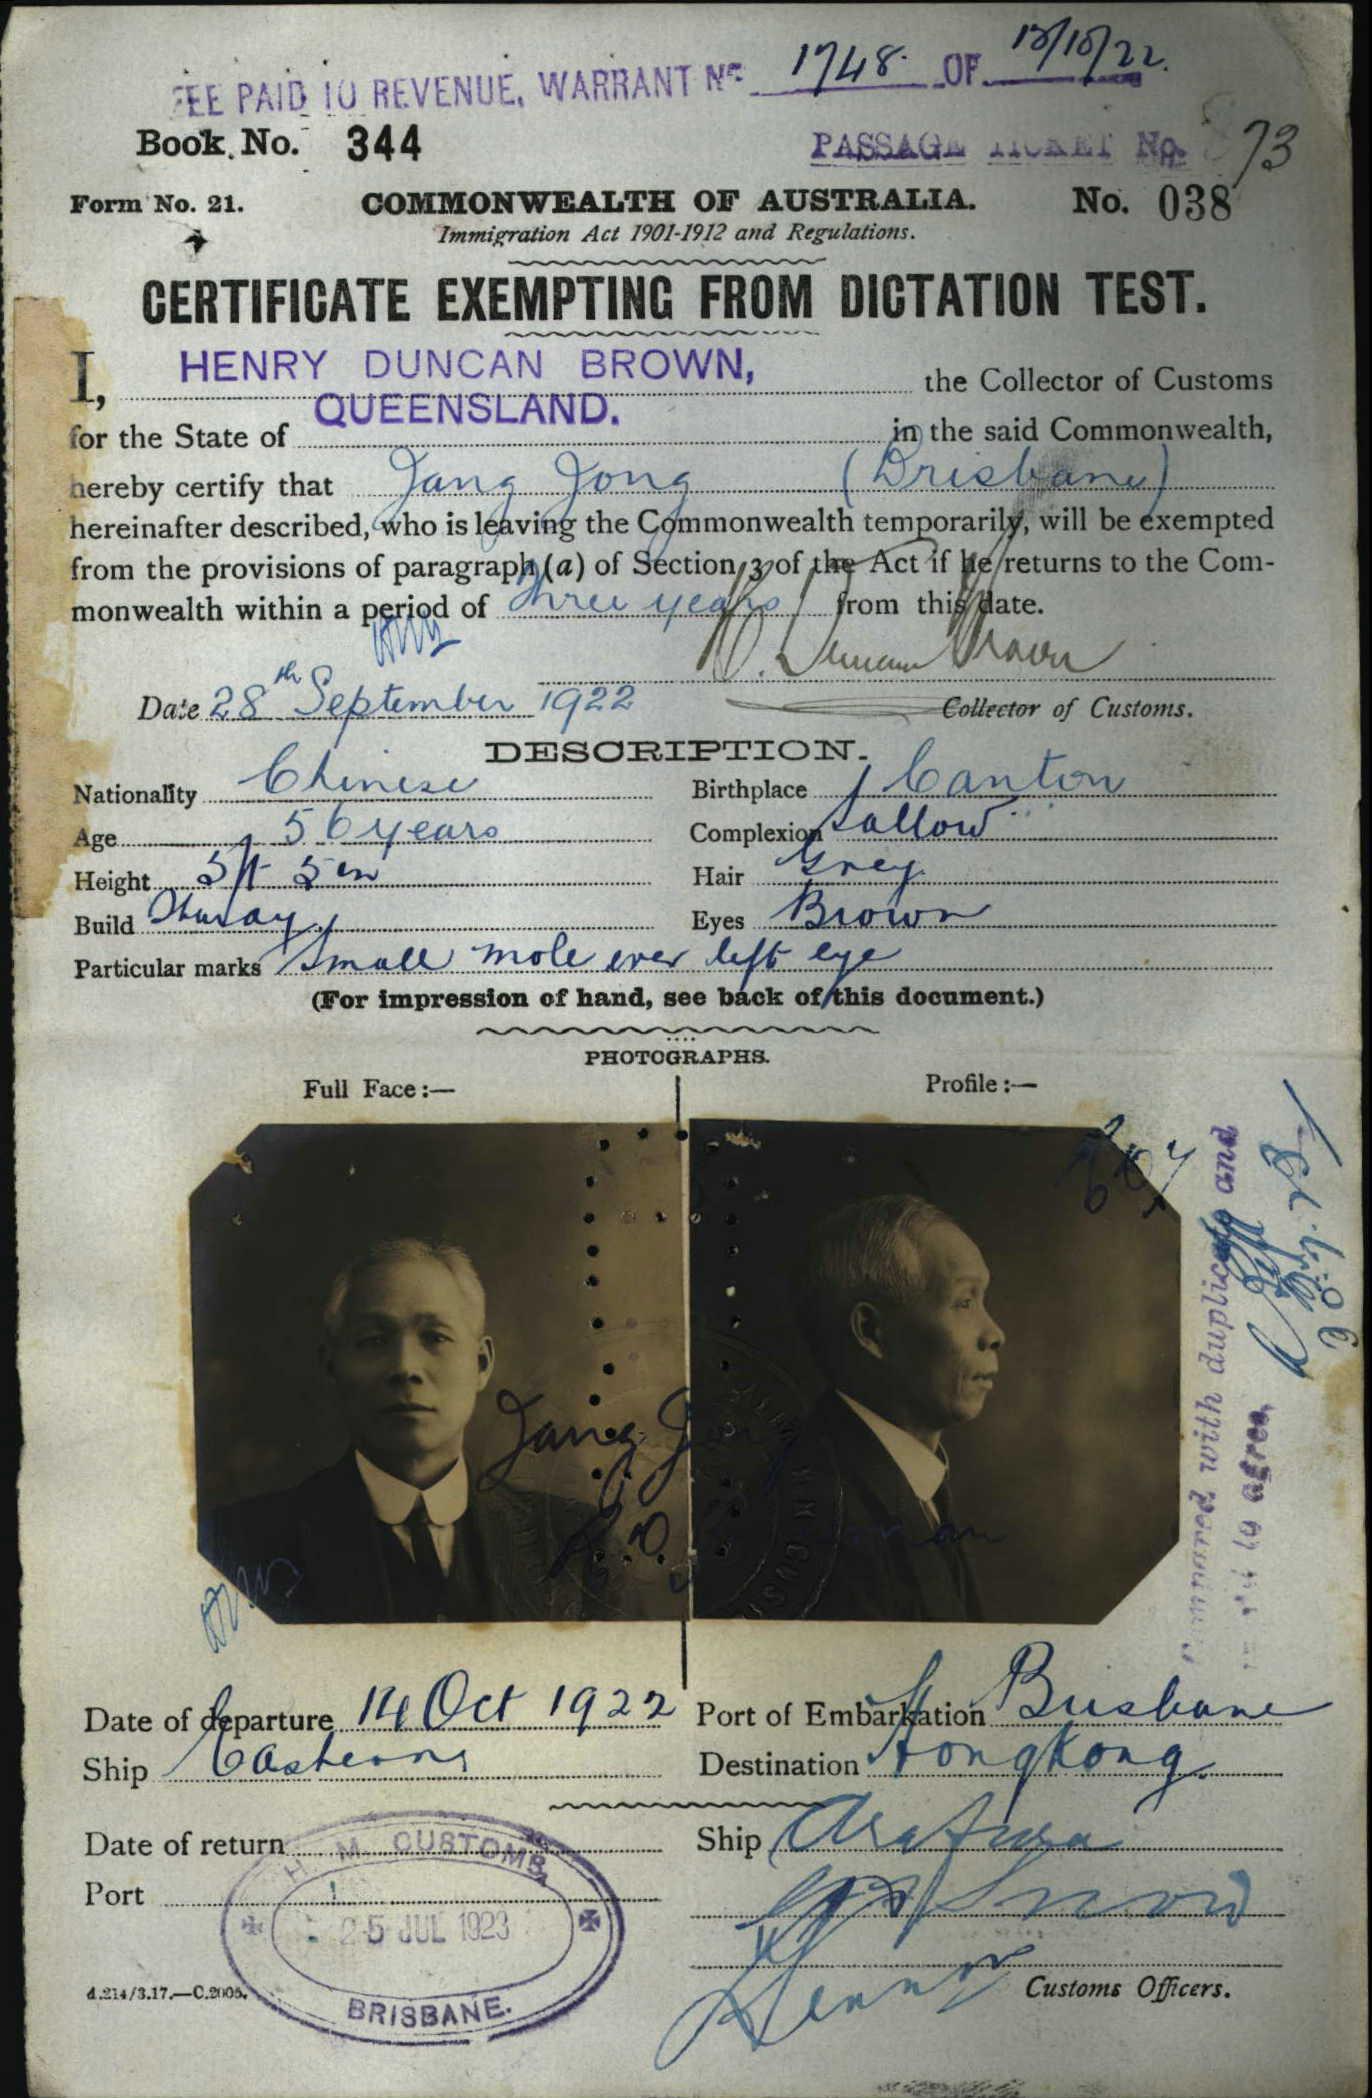 FEE PAID TO REVENUE, WARRANT No 1748. OF 13/10/22.
Book No. 344
PASSAGE TICKET No. 73
Form No. 21. COMMONWEALTH OF AUSTRALIA. No. 038
Immigration Act 1901-1912 and Regulations.
CERTIFICATE EXEMPTING FROM DICTATION TEST.
I, HENRY DUNCAN BROWN, the Collector of Customs
for the State of QUEENSLAND. in the said Commonwealth,
hereby certify that Jang Jong (Brisbane)
hereinafter described, who is leaving the Commonwealth temporarily, will be exempted
from the provisions of paragraph (a) of Section 3 of the Act if he returns to the Com-
monwealth within a period of Three years from this date.
H. Duncan Brown
Date 28th September 1922 Collector of Customs.
DESCRIPTION.
Nationality Chinese Birthplace Canton
Age 56 years Complexion Sallow
Height 5ft 5in Hair Grey
Build Eyes Brown
Particular marks Small mole over left eye
(For impression of hand, see back of this document.)
PHOTOGRAPHS.
Full Face:— Profile:—
Jang Jong
Compared with duplicate and
to agree.
Date of departure 14 Oct 1922 Port of Embarkation Brisbane
Ship Eastern Destination Hongkong.
Date of return Ship Arafura
Port
H. M. CUSTOMS,
25 JUL 1923
BRISBANE.
d.214/3.17.—C.2005. Customs Officers.